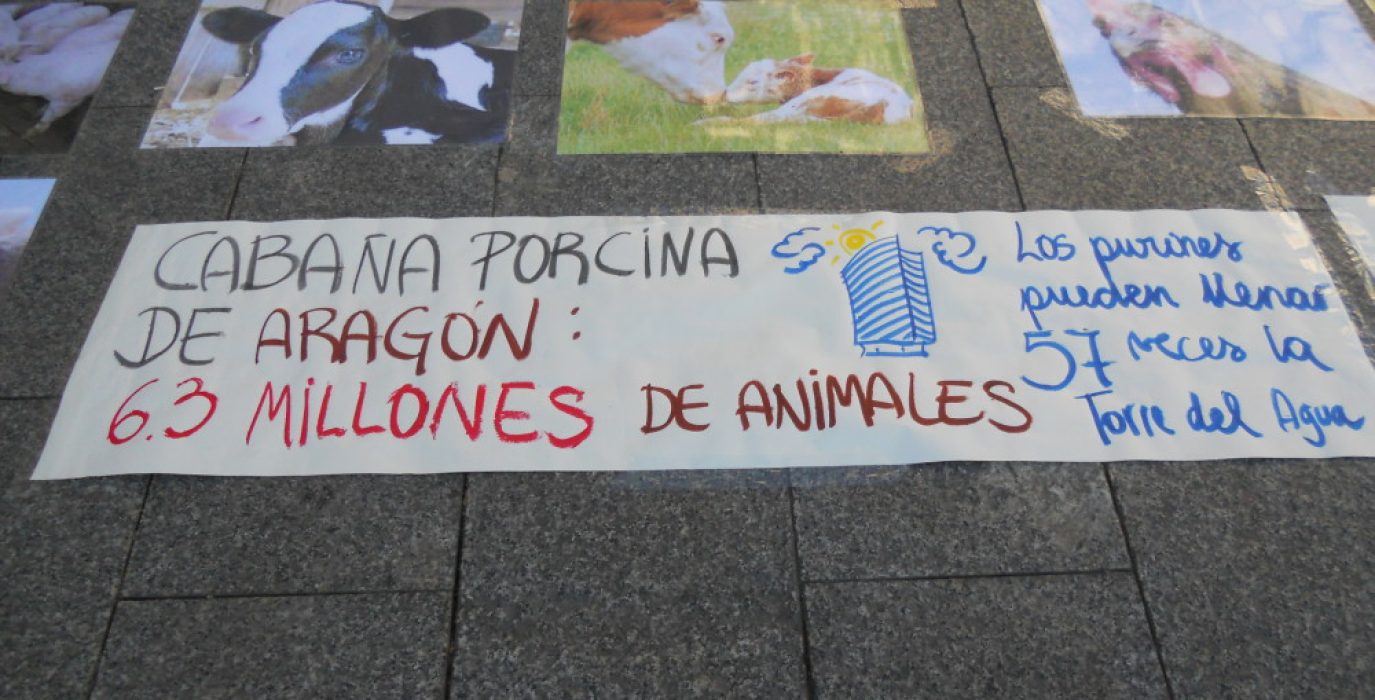 CABAÑA PORCINA
DE ARAGÓN:
6.3 MILLONES DE ANIMALES
Los purines
pueden llenar
57 veces la
Torre del Agua